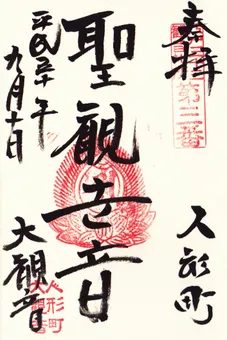 奉拝
第三番
人形町
聖観世音
平成二十年
九月十日
大観音
人形町
大観音